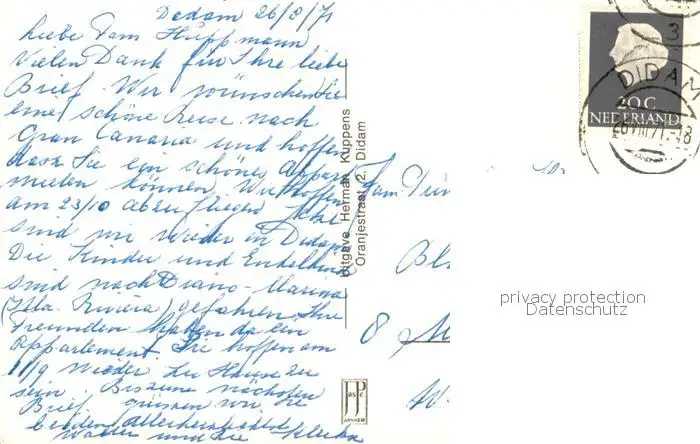 Dedam 26/8/71
Liebe Fam Hüppmann
Vielen Dank für Ihre liebe
Brief. Wir wünschen Sie
eine schöne Reise nach
Gran Canaria und hoffen
dasz Sie ein schönes Appar
mieten können. Wir hoffen
am 23/10 abzufliegen. Jetzt
sind wir wieder in Didam
Die Kinder und Enkelkind
sind nach Diano-Marina
(Ita. Riviera) gefahren. Ihre
Freunden haben da ein
appartement. Sie hoffen am
11/9 wieder zu Hause zu
sein. Bis zum nächsten
Brief grüssen wir Sie
beiden allerherzlichst
und die
Uitgave Herman Kuppens
Oranjestraat 2, Didam
JP
OS C
ARNHEM
20 C
NEDERLAND
DIDAM
26 VIII 71 18
3
Fam
8 M
privacy protection
Datenschutz